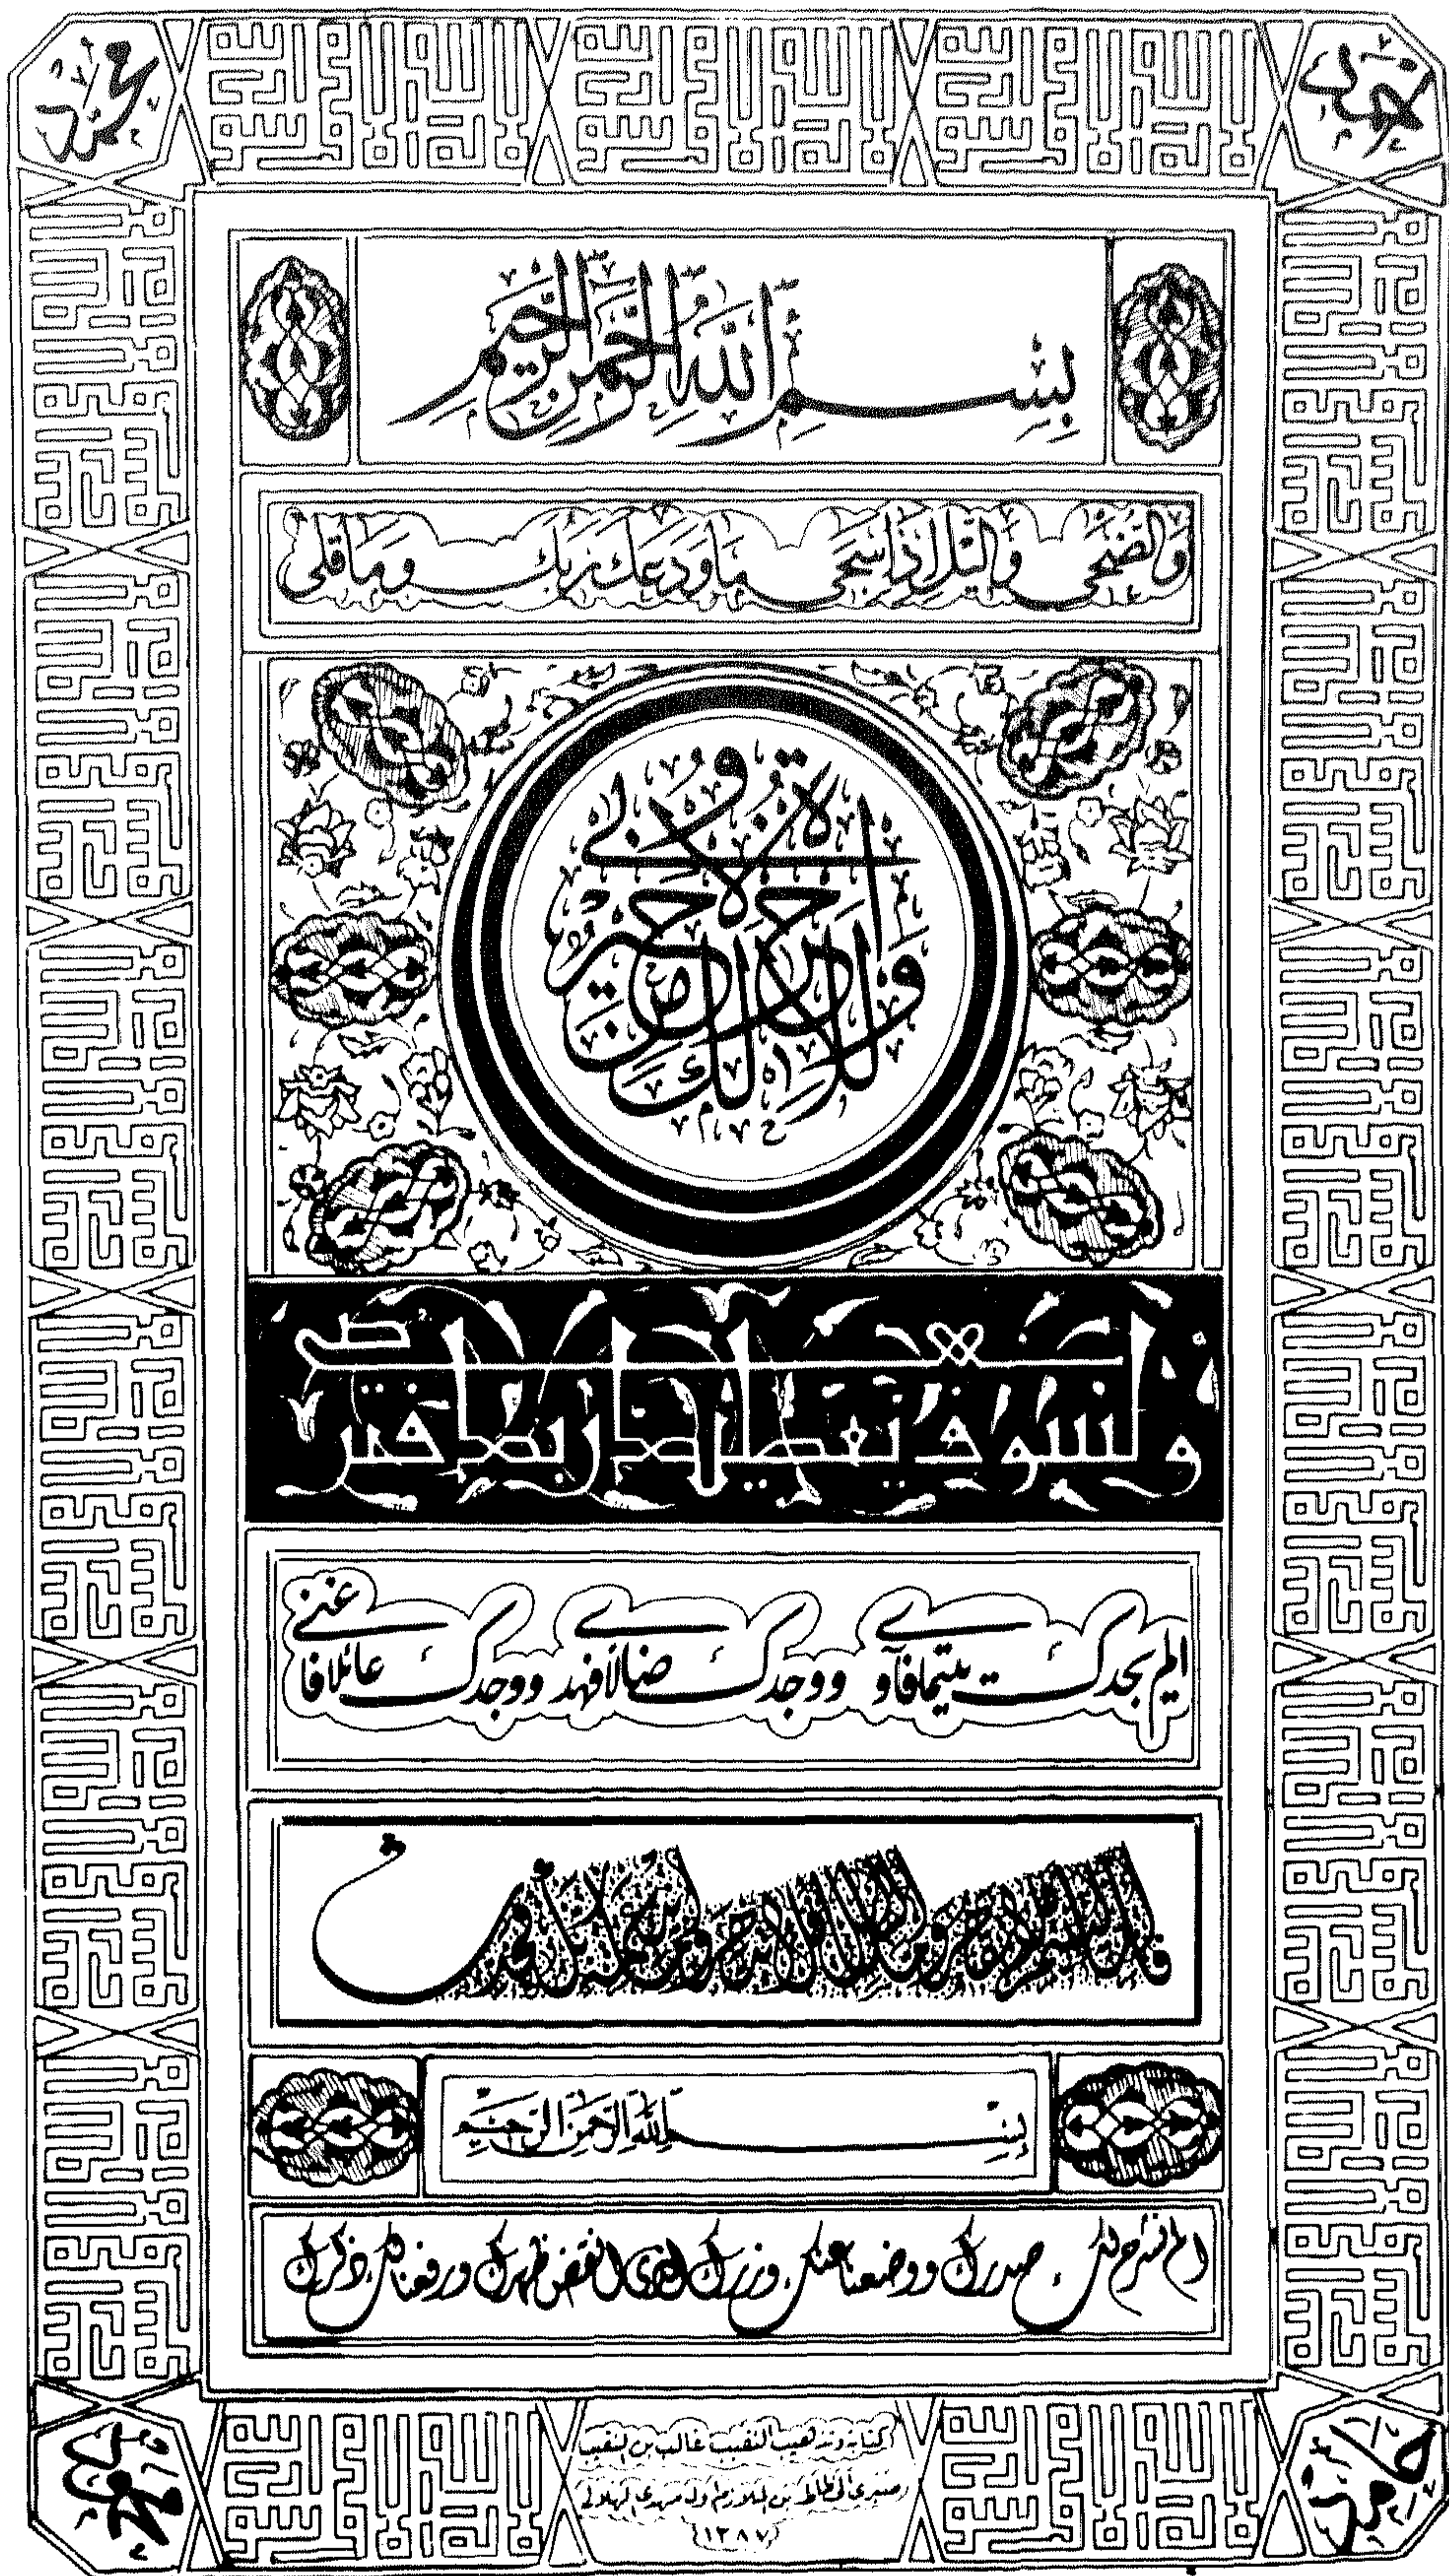 محمد
محمد
لا إله إلا الله محمد رسول الله
بِسْمِ اللَّهِ الرَّحْمَنِ الرَّحِيمِ
وَالضُّحَى وَاللَّيْلِ إِذَا سَجَى مَا وَدَّعَكَ رَبُّكَ وَمَا قَلَى
وللآخرة خير لك من الأولى
ولسوف يعطيك ربك فترضى
الم يجدك يتيما فآوى ووجدك ضالا فهدى ووجدك عائلا فاغنى
فأما اليتيم فلا تقهر وأما السائل فلا تنهر وأما بنعمة ربك فحدث
بسم الله الرحمن الرحيم
الم نشرح لك صدرك ووضعنا عنك وزرك الذى انقض ظهرك ورفعنا لك ذكرك
محمد
كتابة وتذهيب النقيب غالب بن النقيب
صبري الهلالي
١٣٨٧